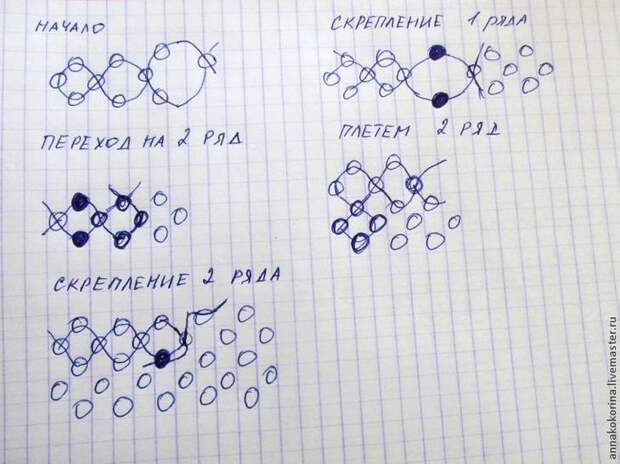 НАЧАЛО
СКРЕПЛЕНИЕ 1 РЯДА
ПЕРЕХОД НА 2 РЯД
ПЛЕТЕМ 2 РЯД
СКРЕПЛЕНИЕ 2 РЯДА
annakokorina.livemaster.ru